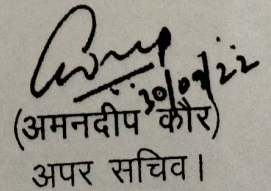 30/09/22
(अमनदीप कौर)
अपर सचिव।